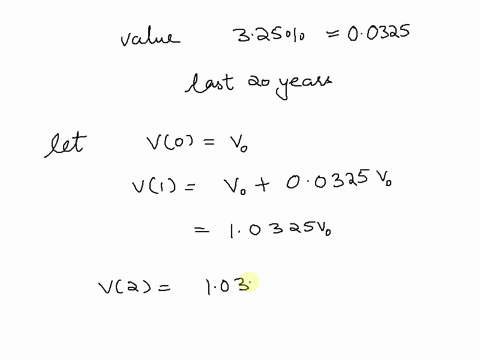 value 3.25% = 0.0325
last 20 years
let V(0) = V₀
V(1) = V₀ + 0.0325 V₀
= 1.0325V₀
V(2) = 1.03